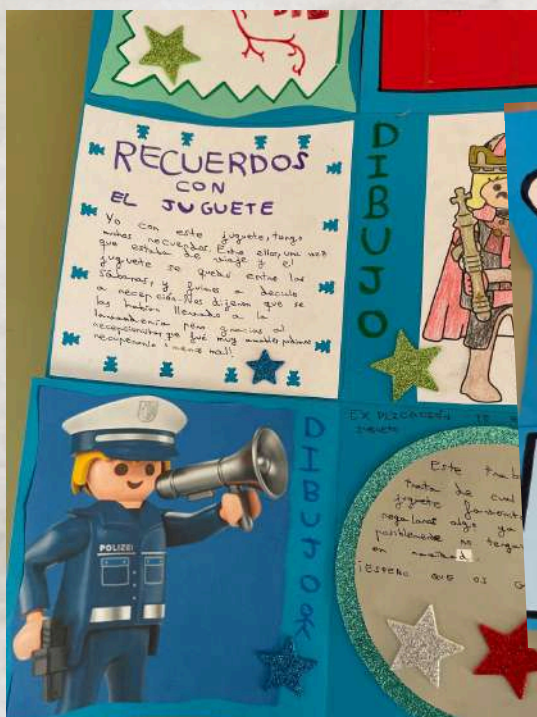 RECUERDOS
CON
EL JUGUETE
Yo con este juguete, tengo
muchos recuerdos. Entre ellos, una vez
que estaba de viaje y el
juguete se quedó entre las
sábanas, y fuimos a decirlo
a recepción. Nos dijeron que se
las habían llevado a la
lavandería pero gracias al
recepcionista, que fué muy amable, pudimos
recuperarlo ¡menos mal!
DIBUJO
POLIZEI
DIBUJO
EXPLICACIÓN
JUGUETE
Este trab
trata de cual
juguete
regalaros algo ya
posiblemente no tenga
en navidad.
¡ESPERO QUE OS G